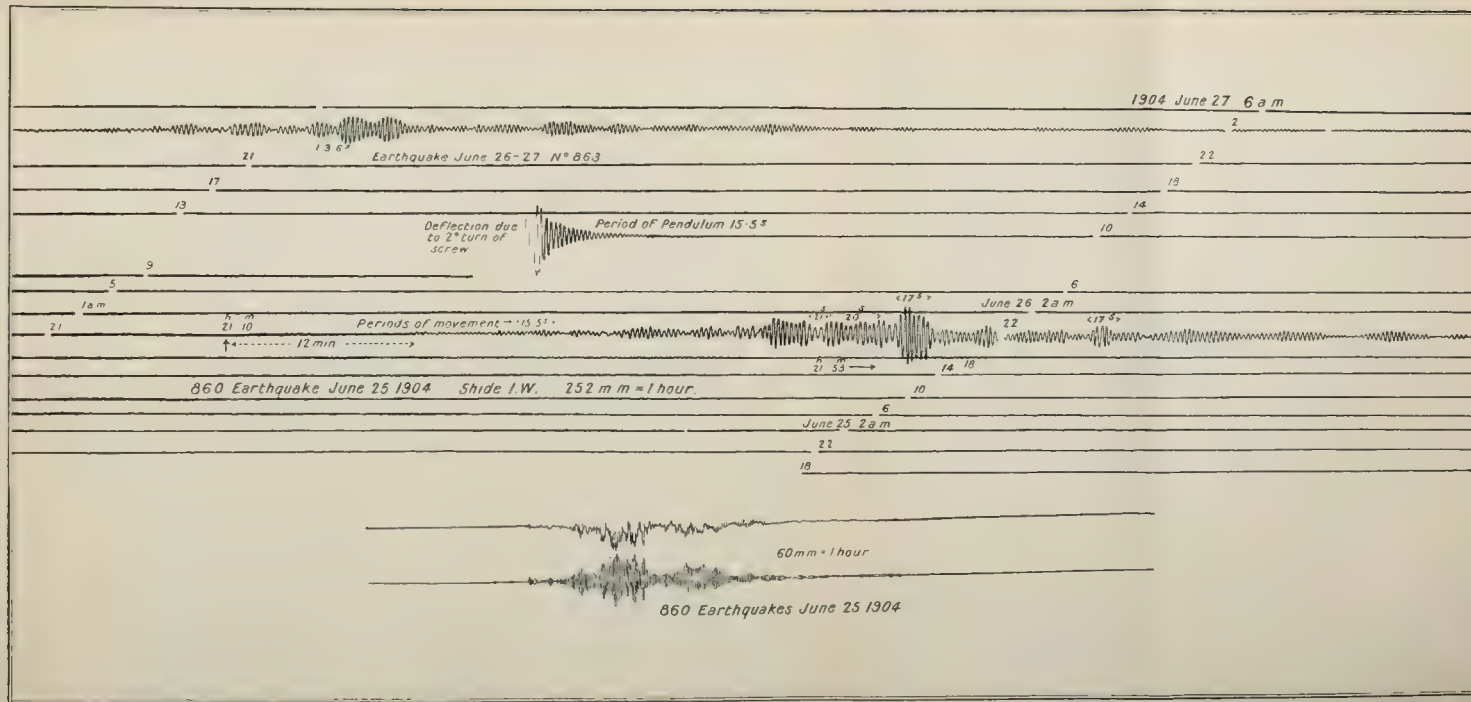 1904 June 27 6 am
2
13 6 s
Earthquake June 26-27 Nº 863
21
22
17
18
13
14
Deflection due
to 2° turn of
screw
Period of Pendulum 15·5 s
10
9
5
6
1 am
<17 s>
June 26 2 am
21
h m
21 10
Periods of movement → 15 5 s
21 s
20 s
22
<17 s>
12 min
h m
21 53
14
18
860 Earthquake June 25 1904 Shide I.W. 252 m m = 1 hour.
10
6
June 25 2 am
22
18
60mm = 1 hour
860 Earthquakes June 25 1904